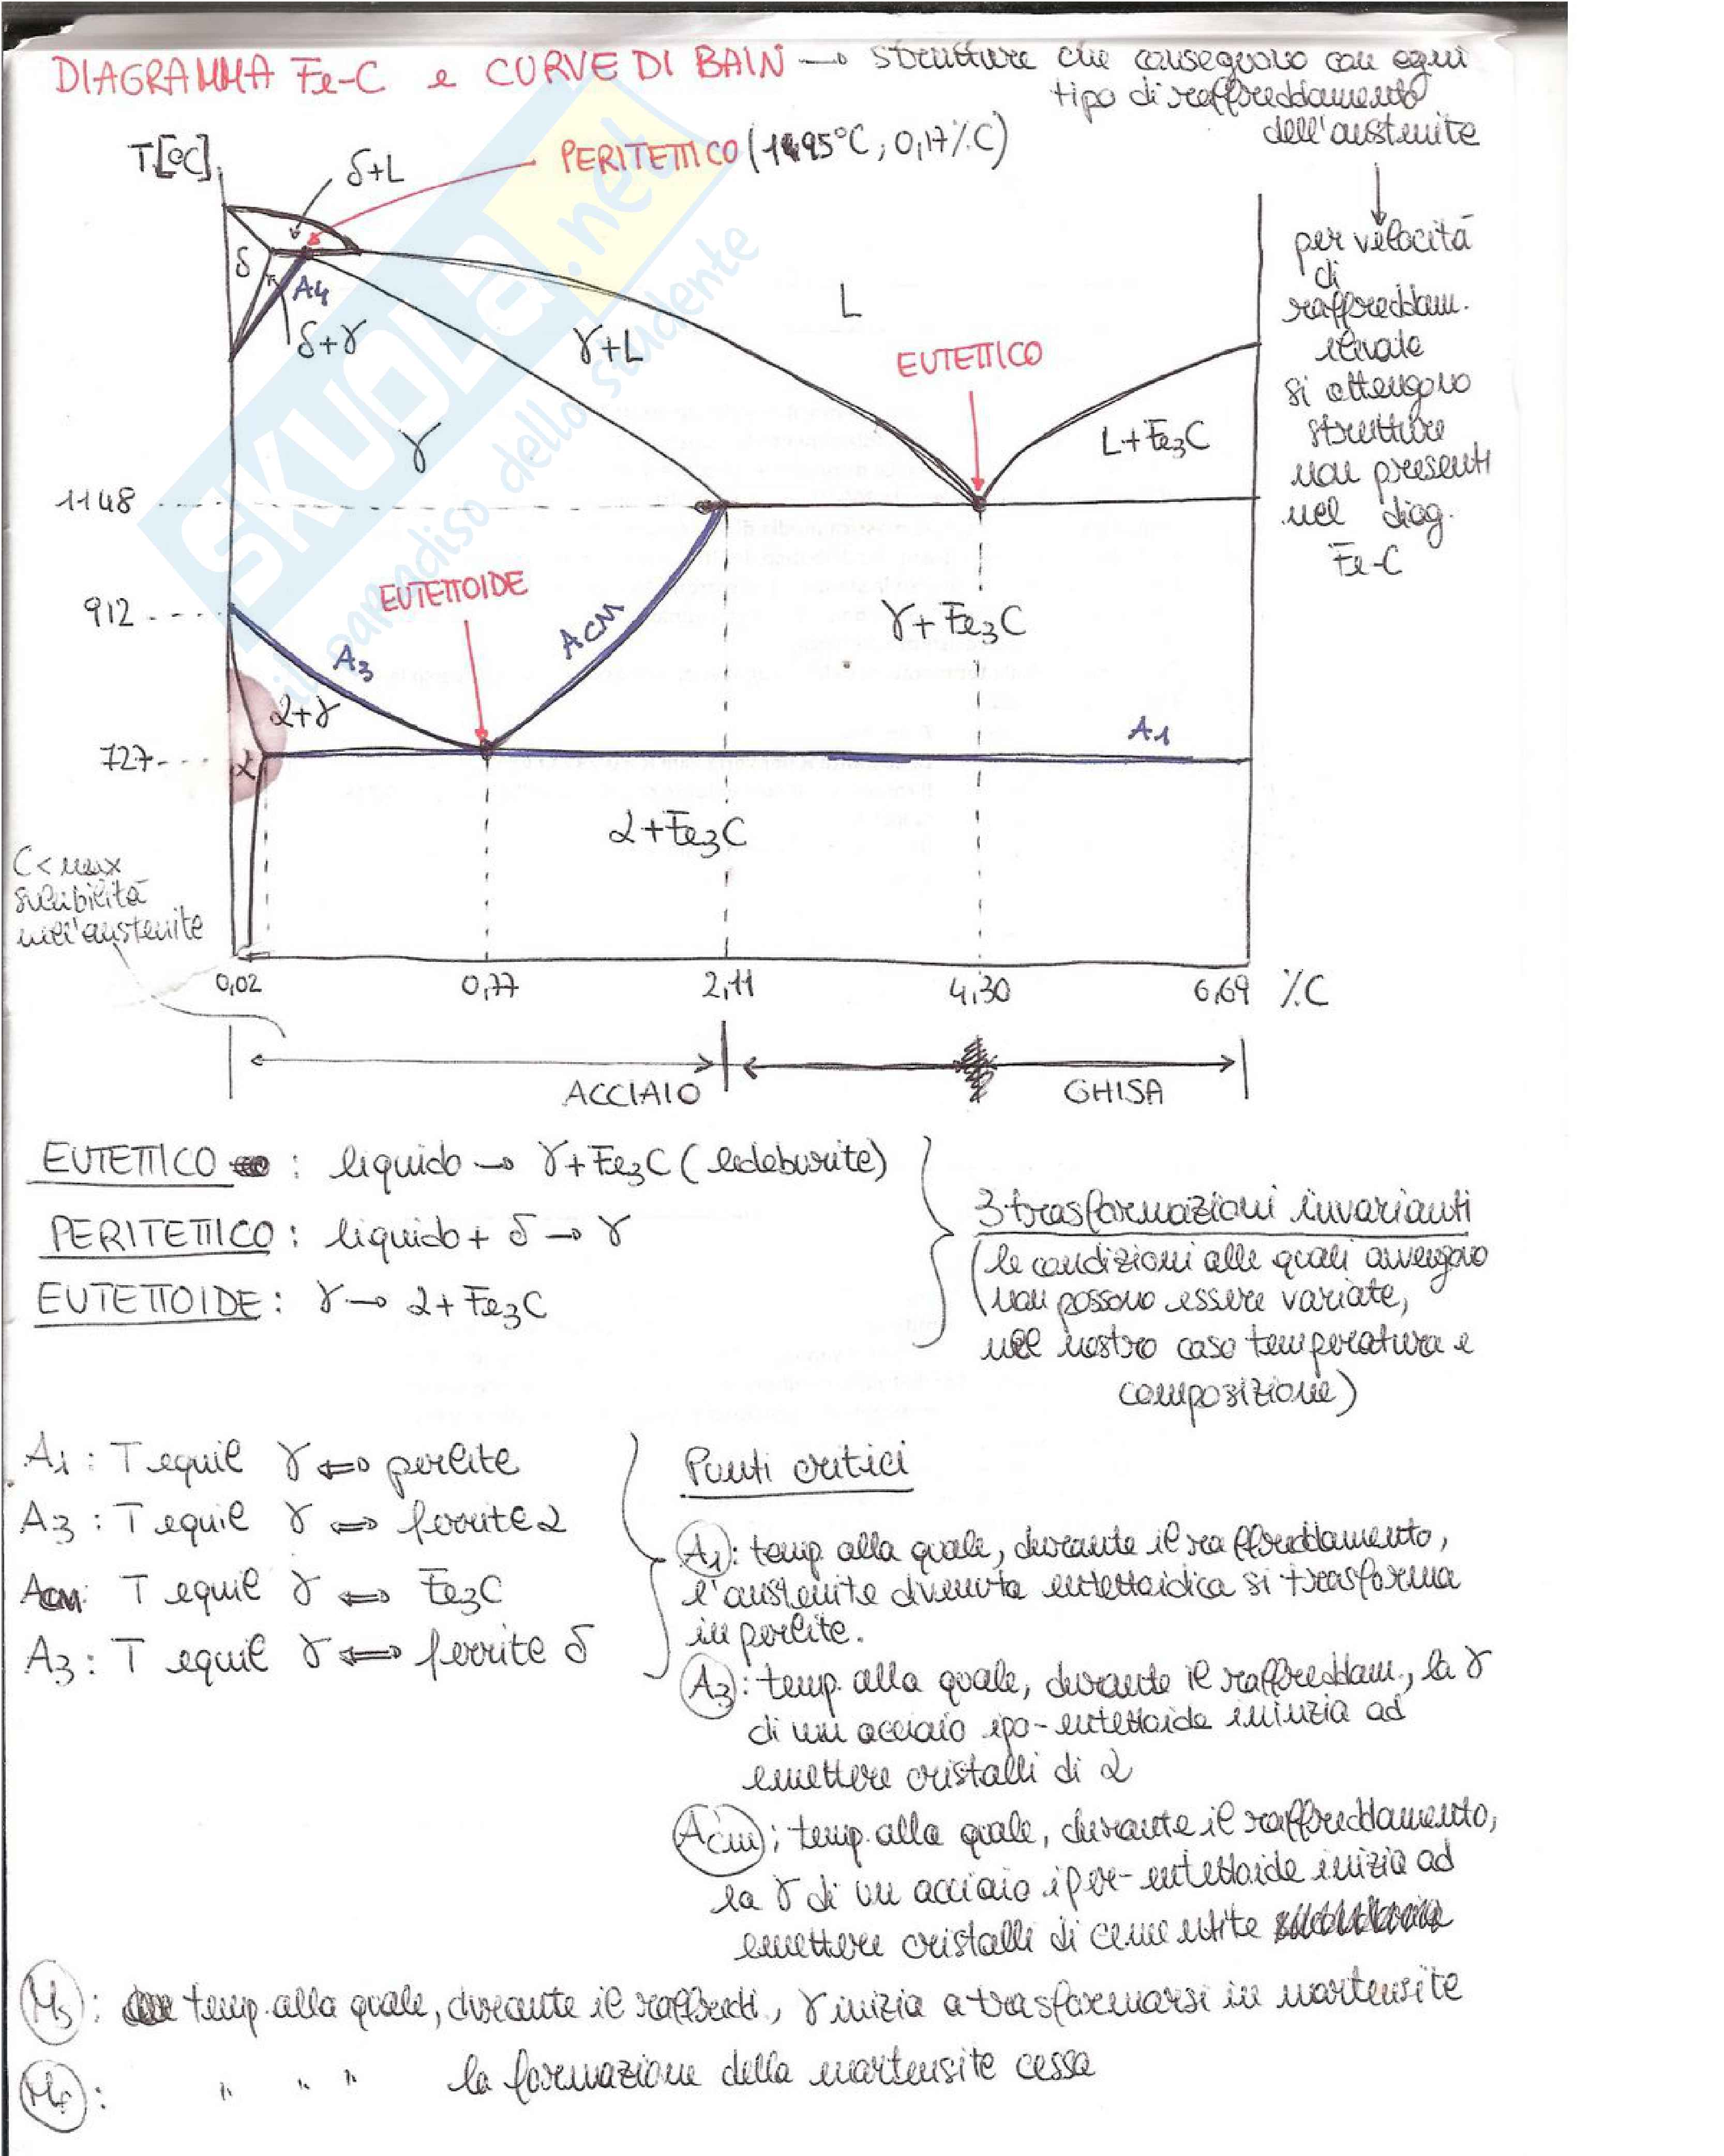 DIAGRAMMA Fe-C e CURVE DI BAIN → strutture che conseguono con ogni
tipo di raffreddamento
dell'austenite
T[°C]
δ+L
PERITETTICO (1495°C, 0,17%C)
per velocità
di
raffreddam.
elevate
si ottengono
strutture
non presenti
nel diag.
Fe-C
δ
A4
δ+γ
γ+L
L
EUTETTICO
L+Fe3C
γ
1148
EUTETTOIDE
912
A3
ACM
γ+Fe3C
α+γ
A1
727
α
α+Fe3C
C< max
solubilità
nell'austenite
0,02
0,77
2,11
4,30
6,69
%C
ACCIAIO
GHISA
EUTETTICO : liquido → γ+Fe3C (ledeburite)
PERITETTICO : liquido + δ → γ
EUTETTOIDE : γ → α+Fe3C
3 trasformazioni invarianti
(le condizioni alle quali avvengono
non possono essere variate,
nel nostro caso temperatura e
composizione)
A1 : T equil γ ⇔ perlite
A3 : T equil γ ⇔ ferrite α
ACM: T equil γ ⇔ Fe3C
A3 : T equil γ ⇔ ferrite δ
Punti critici
A1: temp. alla quale, durante il raffreddamento,
l'austenite divenuta eutettoidica si trasforma
in perlite.
A3: temp. alla quale, durante il raffreddam., la γ
di un acciaio ipo-eutettoide ininzia ad
emettere cristalli di α
Acm: temp. alla quale, durante il raffreddamento,
la γ di un acciaio iper-eutettoide inizia ad
emettere cristalli di cementite
Ms: temp. alla quale, durante il raffredd., γ inizia a trasformarsi in martensite
Mf: " " " la formazione della martensite cessa
SKUOLA.net
il paradiso dello studente